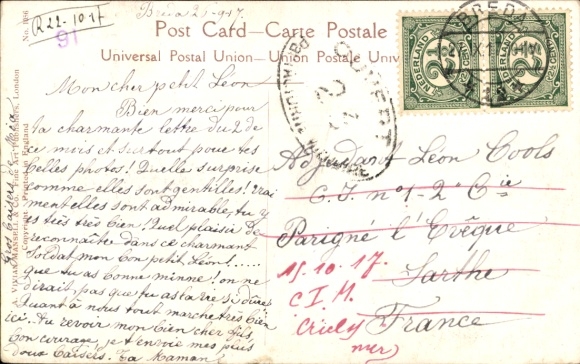 R 22-10-17
16
Breda 2-9-17.
No. 1086
Post Card—Carte Postale
Universal Postal Union—Union Postale Univ
Mon cher petit Léon
Bien merci pour
la charmante lettre du 2 de
ce mois et surtout pour tes
belles photos! Quelle surprise
comme elles sont gentilles! Vrai
ment elles sont admirable, tu y
es très très bien! Quel plaisir de
reconnaître dans ce charmant
soldat mon bon petit Léon!....
que tu as bonne minne! on ne
dirait pas que tu as
Quant à nous tout marche très bien
ici. Au revoir mon bien cher fils,
bon courage, je t'envoie mes plus
doux baisers. Ta Maman
Gros baisers de
VIVIAN MANSELL & Co., Fine Art Publishers, London
Copyright. Printed in England
NEDERLAND
2½
CENT
NEDERLAND
2½
CENT
BREDA
OUVERT
Adjudant Léon Cools
C.I. n°1-2e Cie
Parigné l'Évêque
Sarthe
France
15.10.17.
C I M
Criel
mer)